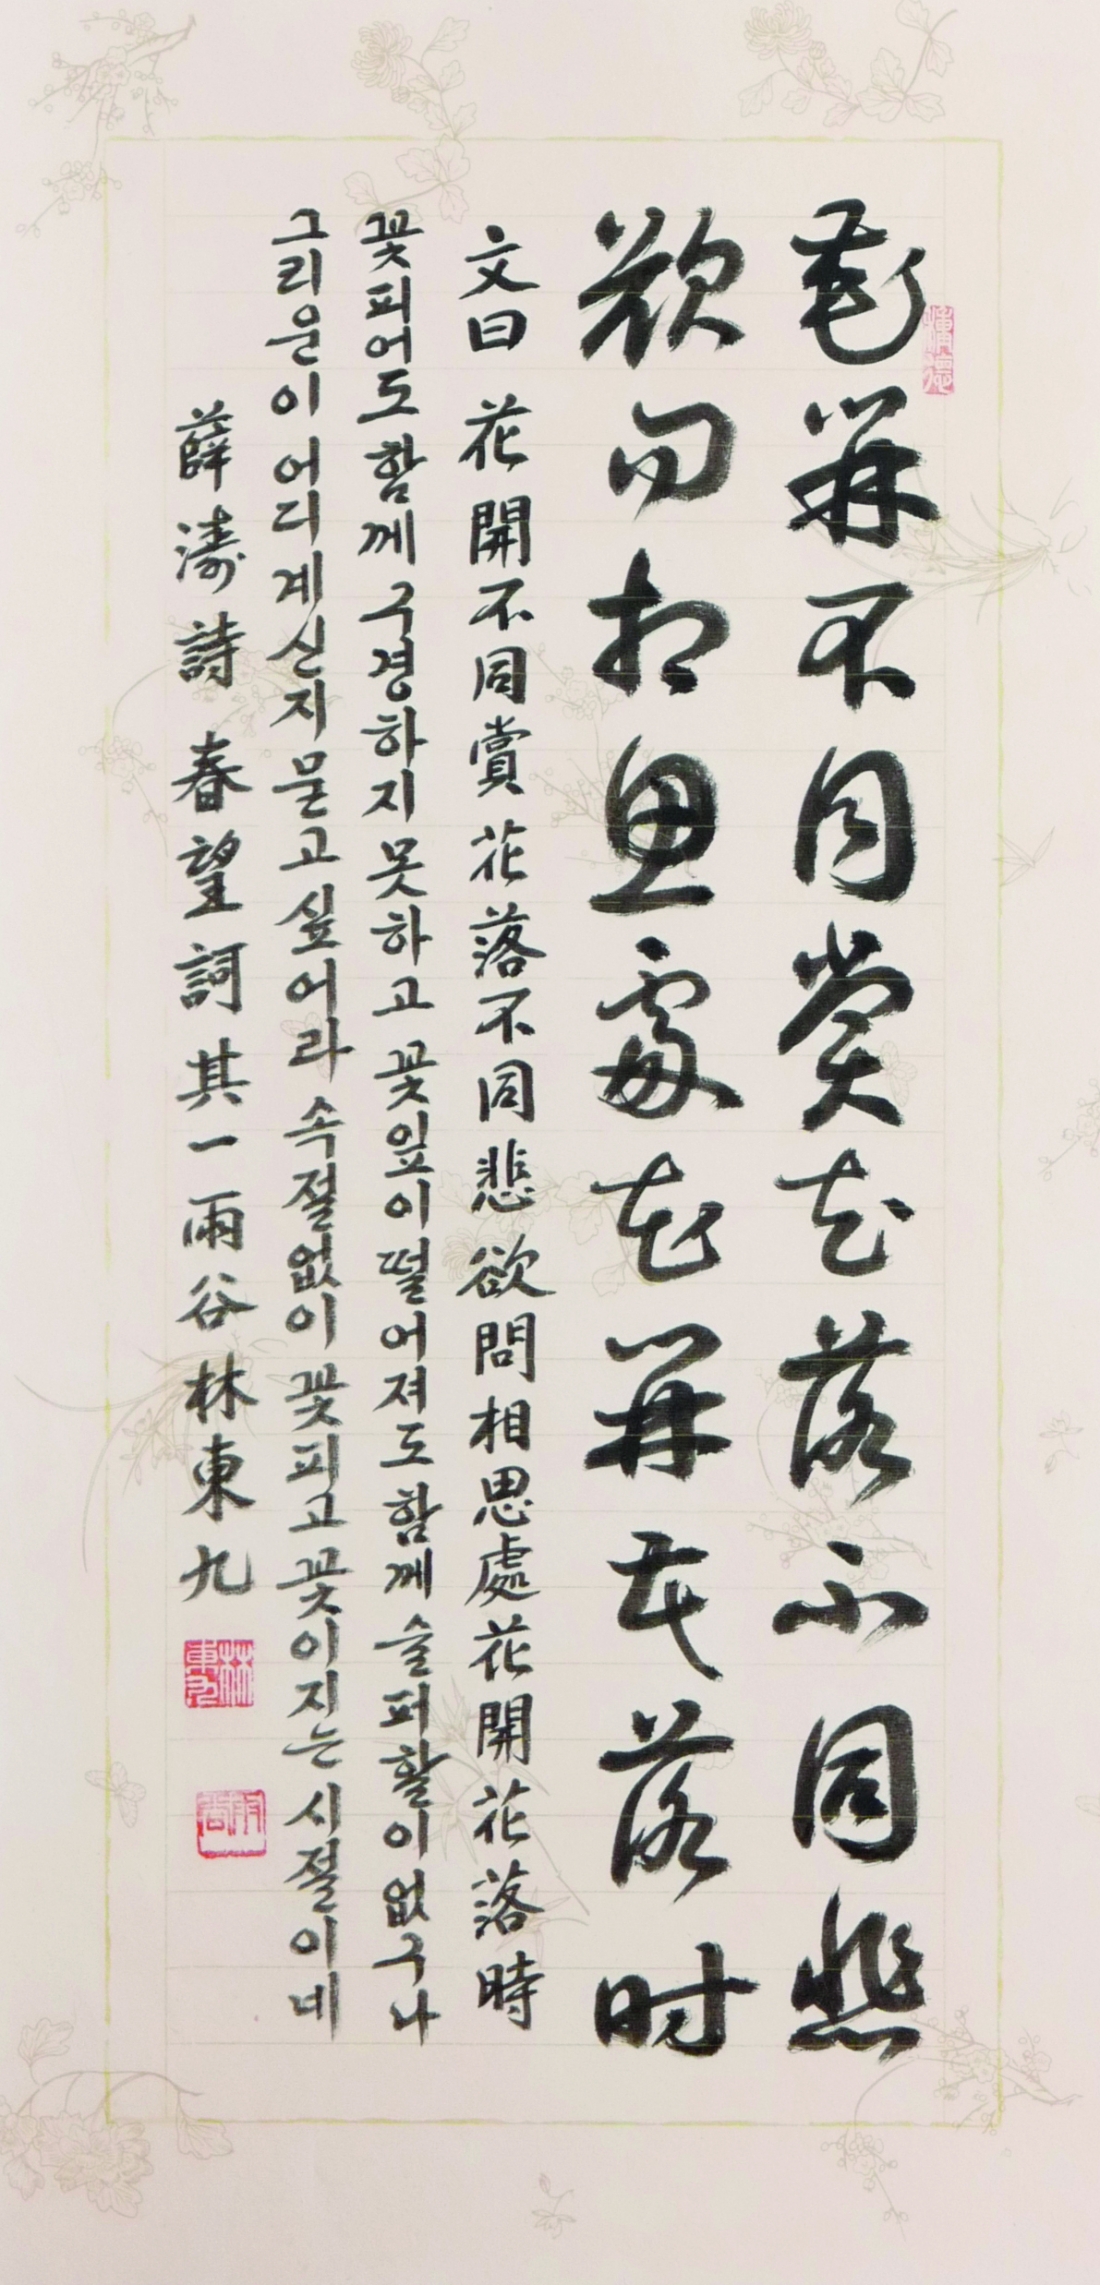 花開不同賞花落不同悲
欲問相思處花開花落時
文曰 花開不同賞 花落不同悲 欲問相思處 花開花落時
꽃피어도 함께 구경하지 못하고 꽃잎이 떨어져도 함께 슬퍼할이 없구나
그리운이 어디 계신지 묻고 싶어라 속절없이 꽃피고 꽃이 지는 시절이네
薛濤詩 春望詞 其一 雨谷 林東九
林東九